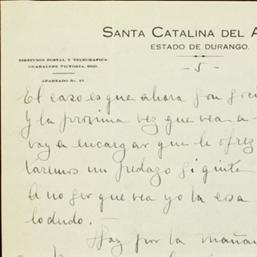 SANTA CATALINA DEL A
ESTADO DE DURANGO.
DIRECCION POSTAL Y TELEGRAFICA:
GUADALUPE VICTORIA, DGO.
APARTADO No.
- 5 -
El caso es que ahora son
Y la proxima vez que vea a
voy a encargar que te
taremos un pedazo
A no ser que vea yo la cosa
lo dudo.
Hoy por la mañana